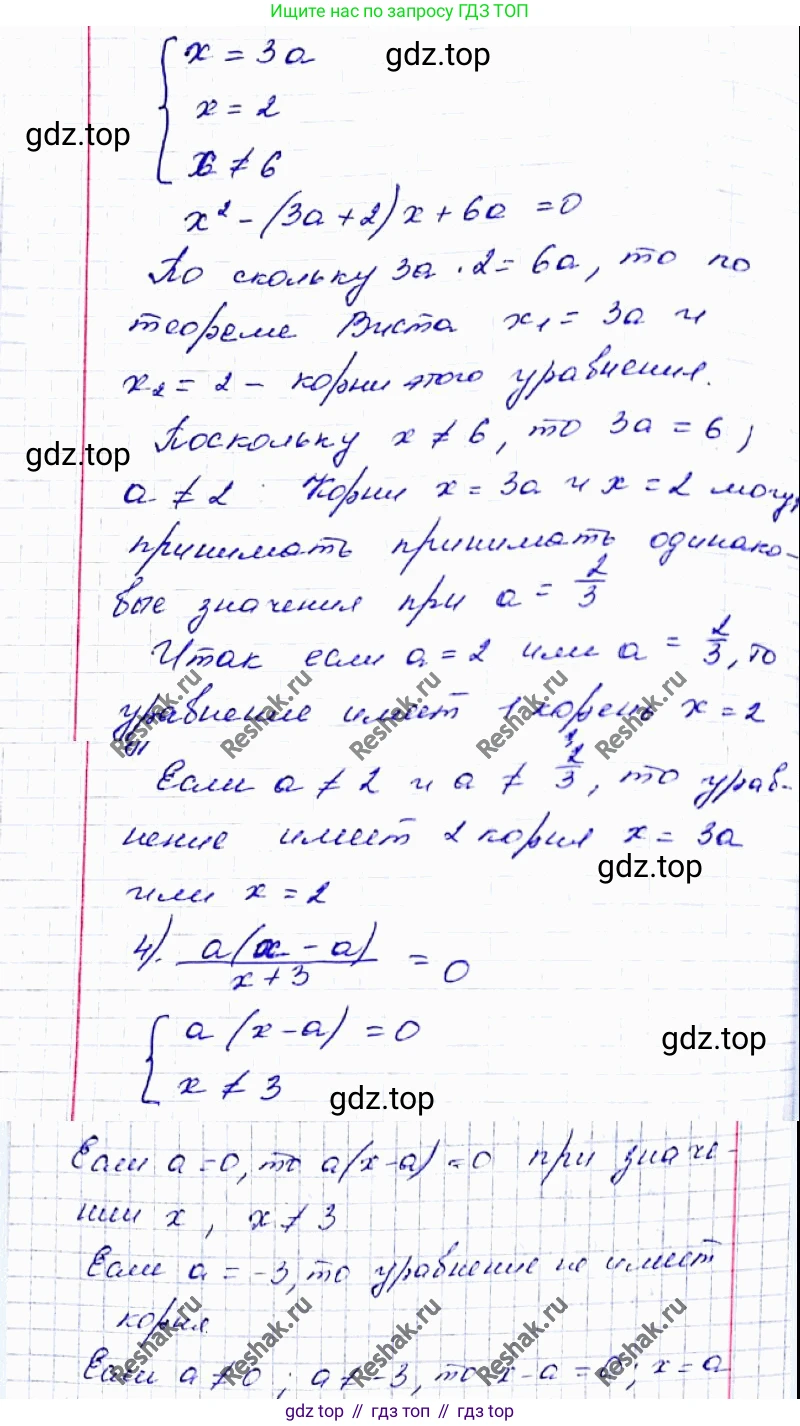 Ищите нас по запросу ГДЗ ТОП
x = 3a
gdz.top
x = 2
gdz.top
x ≠ 6
x² - (3a + 2)x + 6a = 0
По скольку 3a · 2 = 6a, то по
теореме Виета x₁ = 3a и
x₂ = 2 - корни этого уравнения.
Поскольку x ≠ 6, то 3a = 6;
gdz.top
a ≠ 2 Корни x = 3a и x = 2 могут
принимать принимать одинако-
вые значения при a = 2/3
Итак если a = 2 или a = 2/3, то
уравнение имеет 1 корень x = 2
Reshak.ru Reshak.ru Reshak.ru Reshak.ru Reshak.ru
Если a ≠ 2 и a ≠ 2/3, то урав-
нение имеет 2 корня x = 3a
gdz.top
или x = 2
4). a(x - a)/x + 3 = 0
a(x - a) = 0
gdz.top
x ≠ 3
gdz.top
Если a = 0, то a(x - a) = 0 при значе-
нии x, x ≠ 3
Если a = -3, то уравнение не имеет
корня
Reshak.ru Reshak.ru Reshak.ru Reshak.ru Reshak.ru
Если a ≠ 0; a ≠ -3, то x - a = 0; x = a
gdz.top // гдз.топ // gdz.top